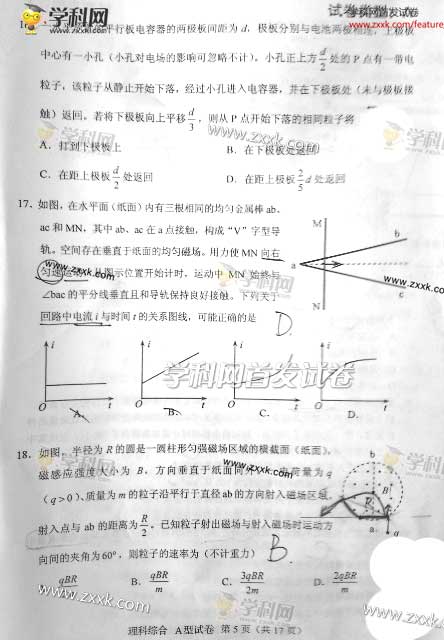 学科网
试卷类型
学科网首发试卷
http://www.zxxk.com/feature
16.
平行板电容器的两极板间距为 d，极板分别与电池两极相连，上极板
中心有一小孔（小孔对电场的影响可忽略不计）。小孔正上方 d/2 处的 P 点有一带电
粒子，该粒子从静止开始下落，经过小孔进入电容器，并在下极板处（未与极板接
触）返回。若将下极板向上平移 d/3，则从 P 点开始下落的相同粒子将
A．打到下极板上 B．在下极板处返回
C．在距上极板 d/2 处返回 D．在距上极板 2/5 d 处返回
17．如图，在水平面（纸面）内有三根相同的均匀金属棒 ab、
ac 和 MN，其中 ab、ac 在 a 点接触，构成“V”字型导
轨。空间存在垂直于纸面的均匀磁场。用力使 MN 向右
匀速运动，从图示位置开始计时，运动中 MN 始终与
∠bac 的平分线垂直且和导轨保持良好接触。下列关于
回路中电流 i 与时间 t 的关系图线，可能正确的是 D.
M
b
a
c
N
i i i i
O t O t O t O t
A. B. C. D.
学科网首发试卷
18．如图，半径为 R 的圆是一圆柱形匀强磁场区域的横截面（纸面），
磁感应强度大小为 B，方向垂直于纸面向外，一电荷量为 q
(q>0)、质量为 m 的粒子沿平行于直径 ab 的方向射入磁场区域，
射入点与 ab 的距离为 R/2。已知粒子射出磁场与射入磁场时运动方
向间的夹角为 60°，则粒子的速率为（不计重力） B.
b
B
R
a
q
qBR/2m B. qBR/m C. 3qBR/2m D. 2qBR/m
理科综合 A型试卷 第 5 页（共 17 页）
www.zxxk.com